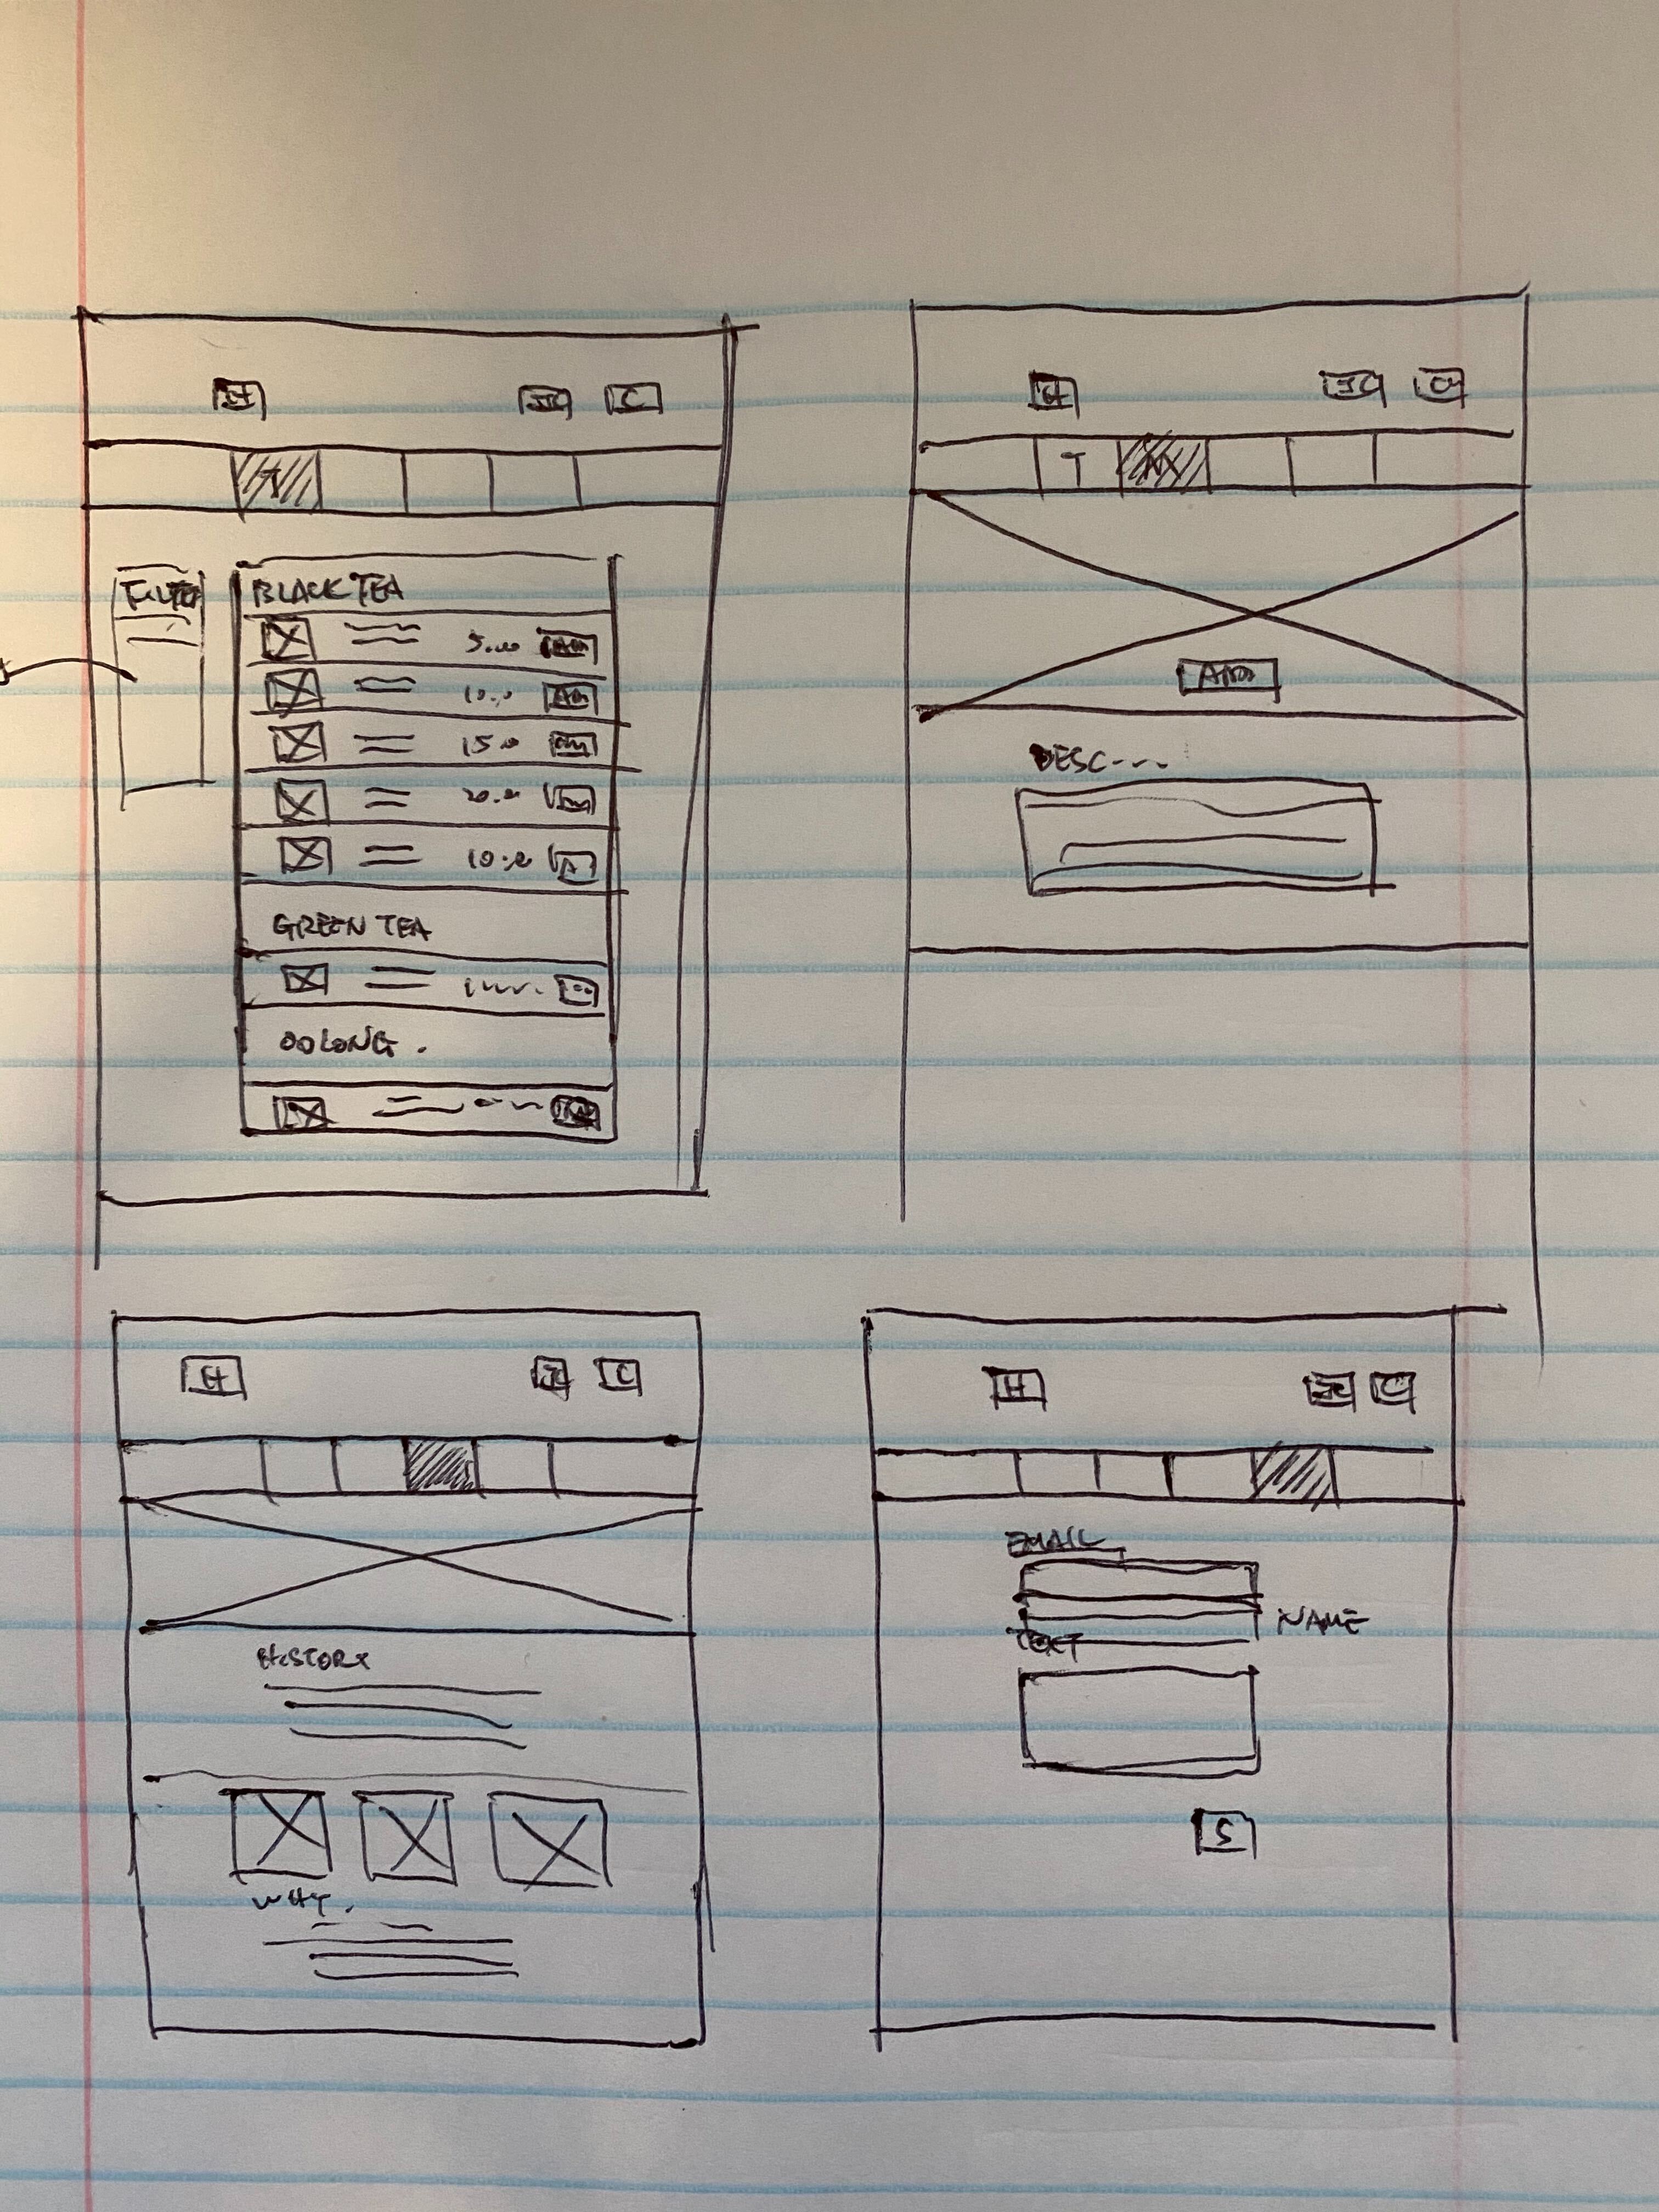 H C
FILTER
BLACK TEA
5.00 ADD
10.0
15.0
20.0
10.0
GREEN TEA
OOLONG.
H
T
ADD
DESC---
H C
HISTORY
WHY.
H C
EMAIL
NAME
TEXT
S